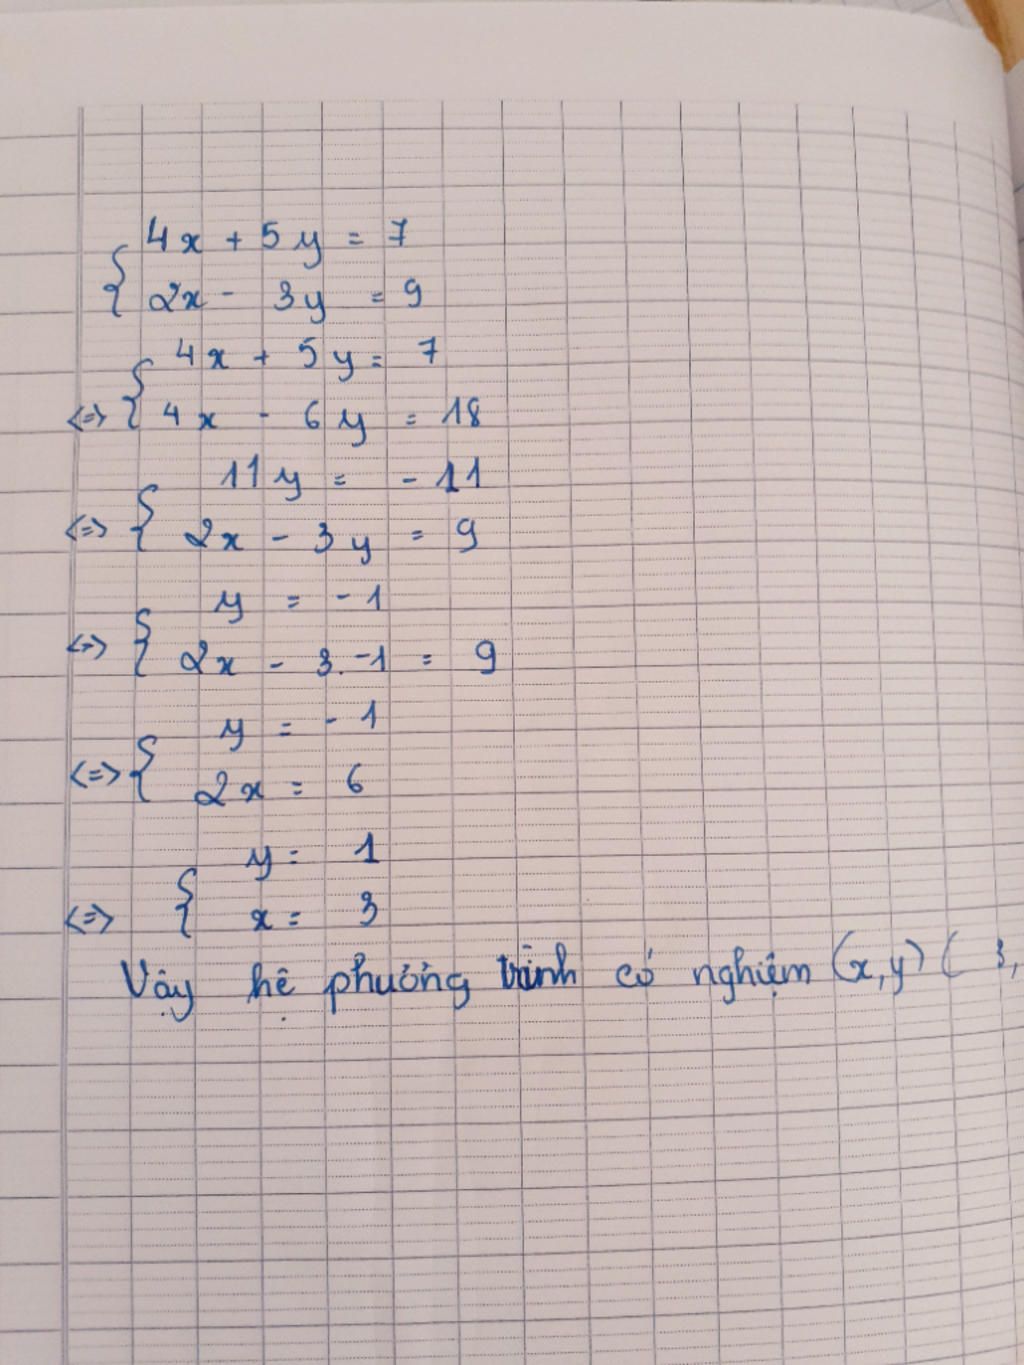 { 4x + 5y = 7
2x - 3y = 9
<=> { 4x + 5y = 7
4x - 6y = 18
<=> { 11y = -11
2x - 3y = 9
<=> { y = -1
2x - 3.-1 = 9
<=> { y = -1
2x = 6
<=> { y = 1
x = 3
Vậy hệ phương trình có nghiệm (x,y) ( 3,